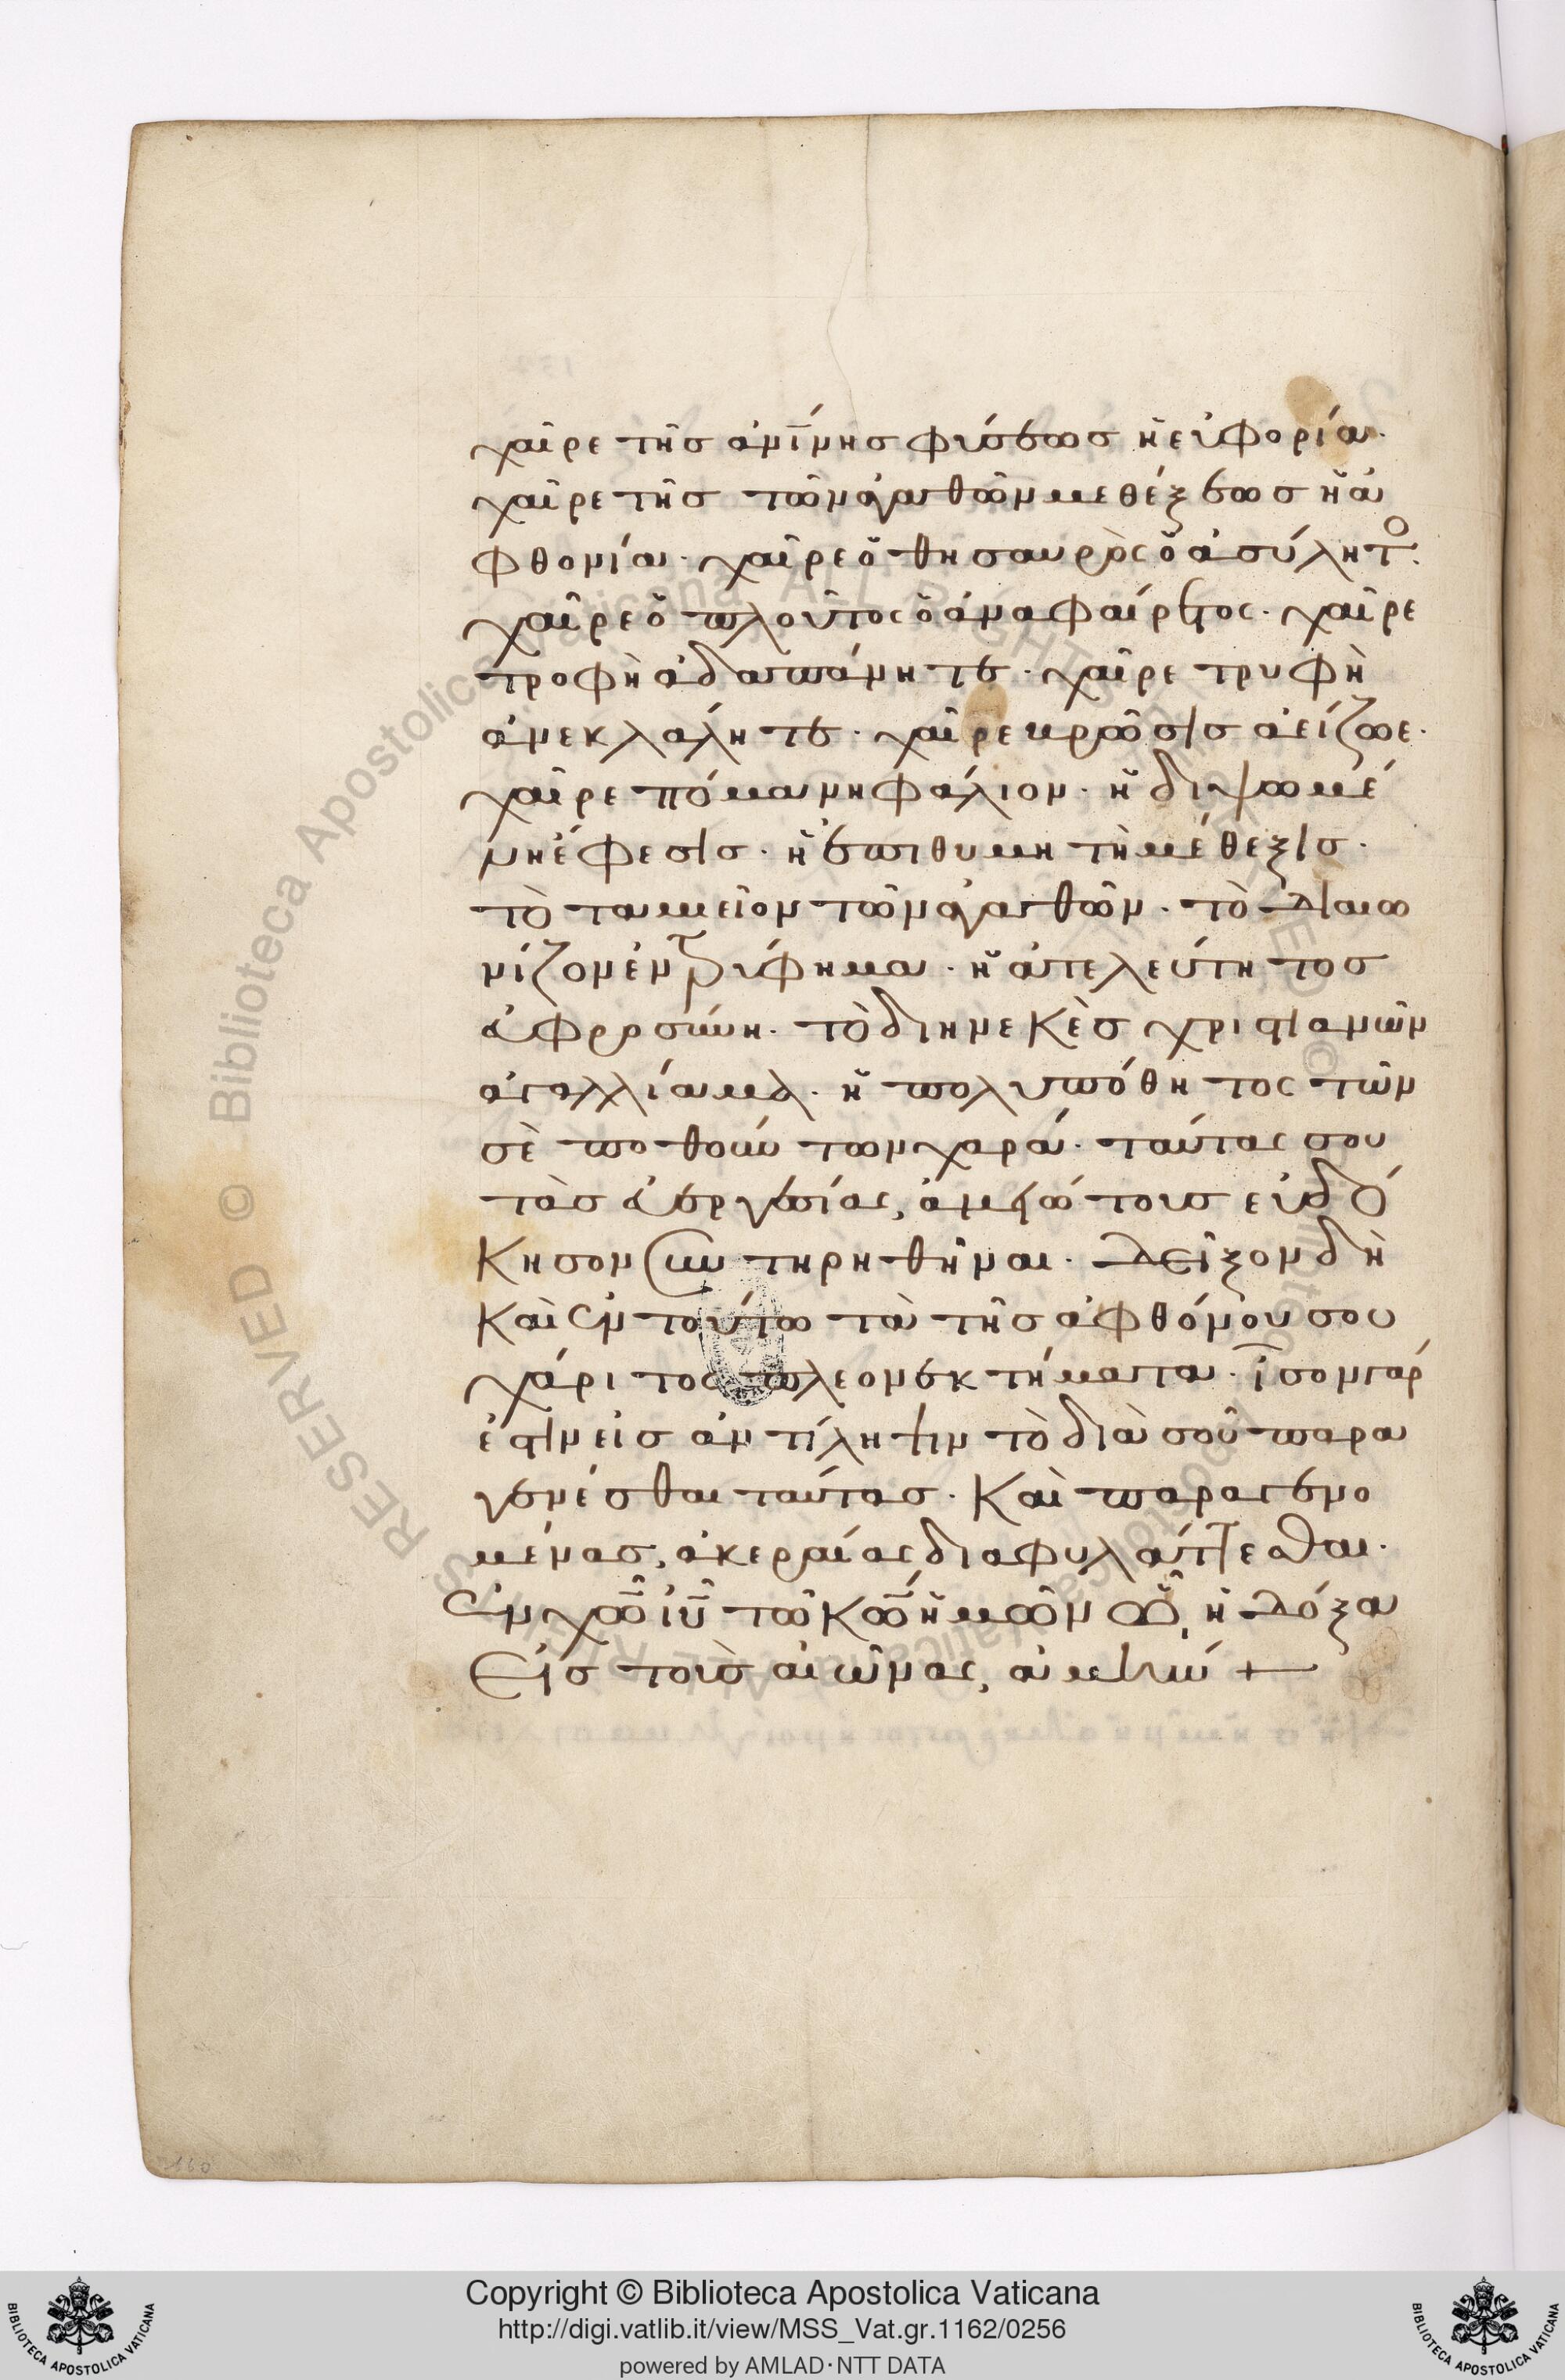 χαῖρε τῆς ἀμΐμης φύσεως ἡ εὐφορία·
χαῖρε τῆς τῶν ἀγαθῶν μεθέξεως ἡ ἀ
φθονία· χαῖρε ὁ θησαυρὸς ὁ ἀσύλητο·
χαῖρε ὁ πλοῦτος ὁ ἀναφαίρετος· χαῖρε
τροφὴ ἀδαπάνητε· χαῖρε τρυφὴ
ἀνεκλάλητε· χαῖρε κρᾶσις ἀείζωε·
χαῖρε πόμα νηφάλιον· ἡ διψωμέ
νη ἔφεσις· ἡ ἐπιθυμητὴ μέθεξις·
τὸ ταμεῖον τῶν ἀγαθῶν· τὸ διαιω
νίζον ἐντρύφημα· ἡ ἀτελεύτητος
εὐφροσύνη· τὸ διηνεκὲς χριστιανῶν
ἀγαλλίαμα· ἡ πολυπόθητος τῶν
σὲ ποθούντων χαρά· ταύτας σου
τὰς εὐεργεσίας, ἀμειώτους εὐδό
κησον συντηρηθῆναι· δεῖξον δὴ
καὶ ἐν τούτω τὰ τῆς ἀφθόνου σου
χάριτος πλεονεκτήματα· ἴσον γάρ
ἐστιν εἰς ἀντίληψιν τὸ διὰ σοῦ παρα
γενέσθαι ταύτας· καὶ παραγενο
μένας, ἀκεραίας διαφυλάττεσθαι·
ἐν χῶ ἰῦ τῶ κῶ ἡμῶν ὧ, ἡ δόξα
εἰς τοὺς αἰῶνας, ἀμήν +
Copyright © Biblioteca Apostolica Vaticana
http://digi.vatlib.it/view/MSS_Vat.gr.1162/0256
powered by AMLAD·NTT DATA
BIBLIOTECA APOSTOLICA VATICANA
BIBLIOTECA APOSTOLICA VATICANA